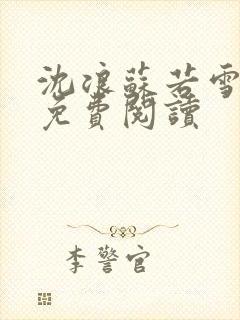 沈浪蘇若雪
免費閱讀
李警官